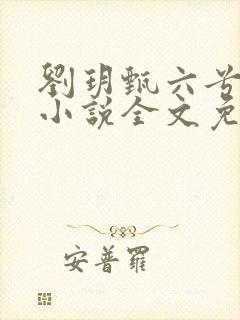 劉玥甄六兮
小說全文免
安普羅